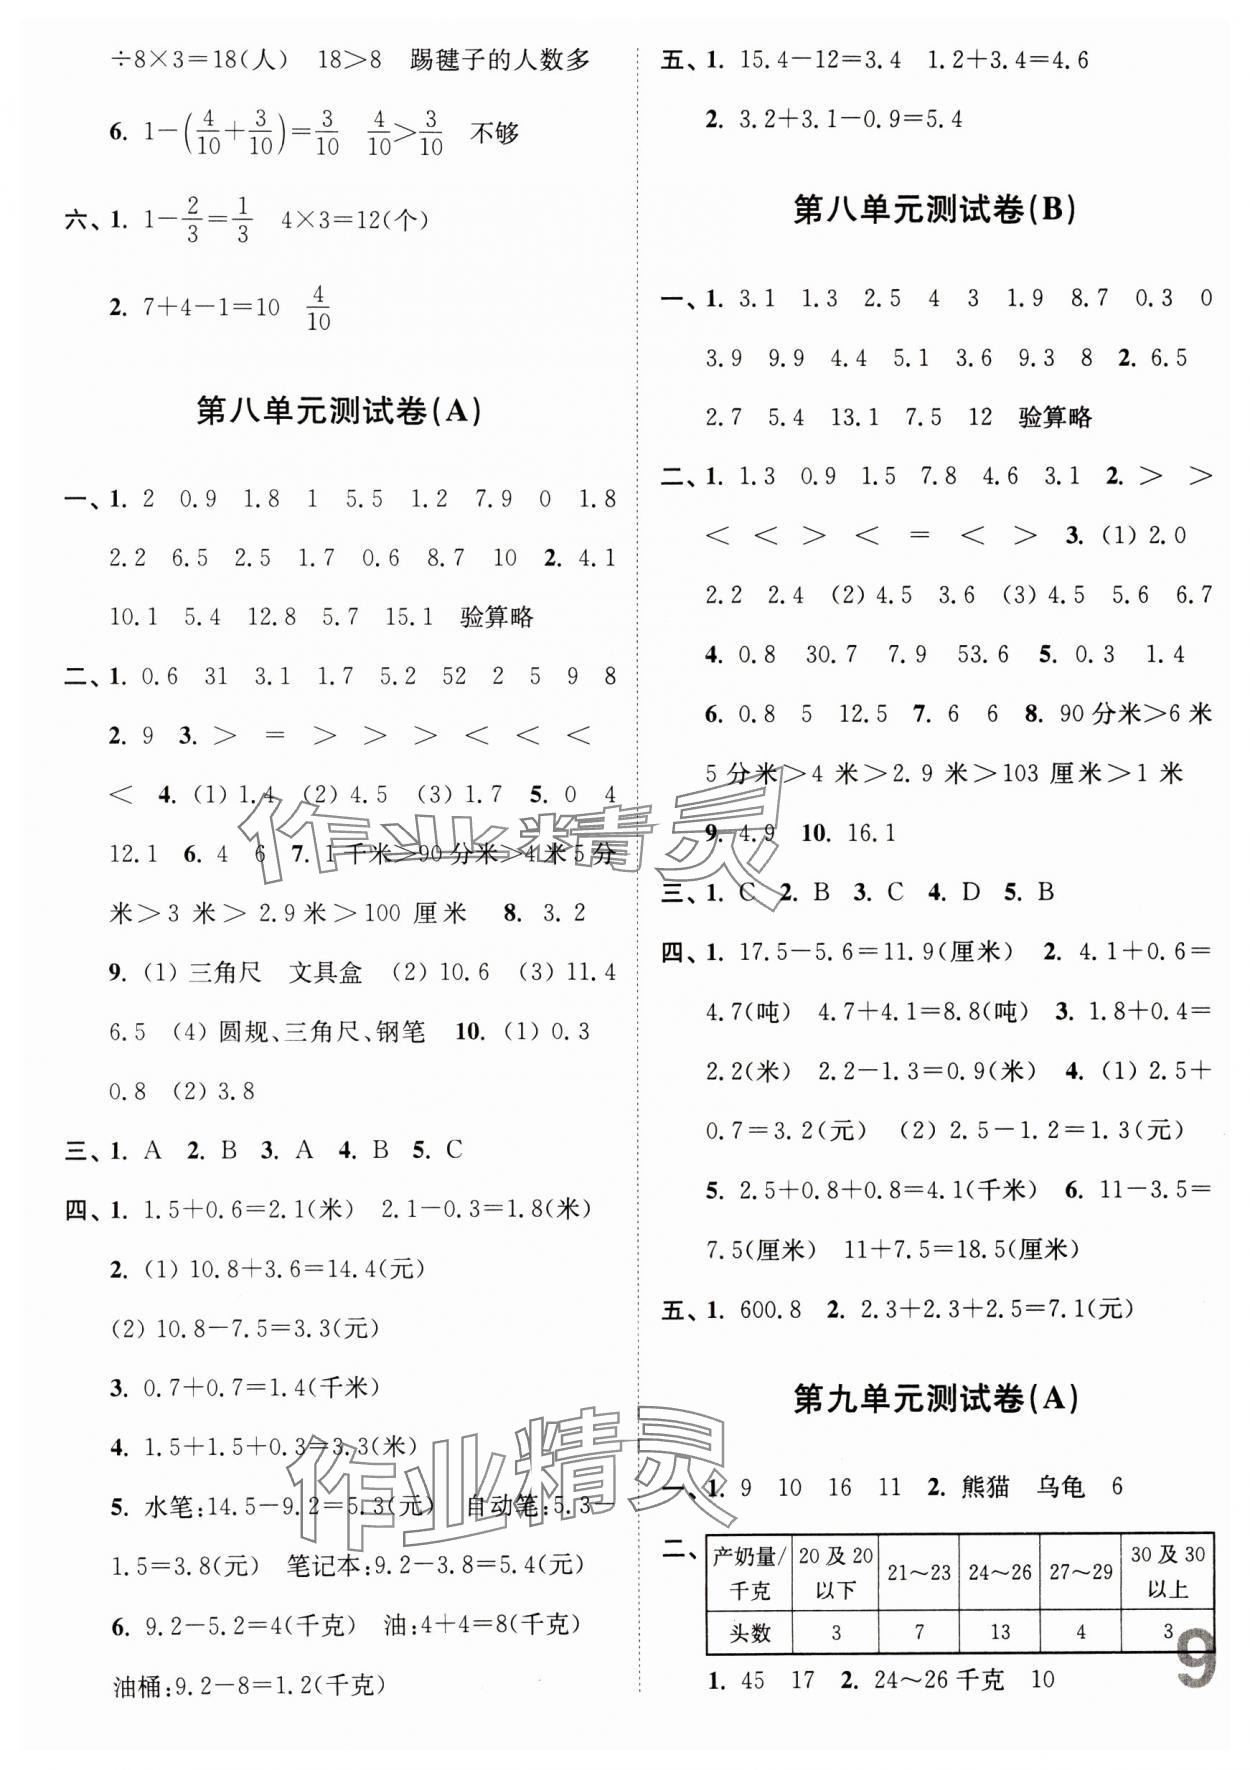 ÷8×3=18(人) 18>8 踢毽子的人数多
6. 1-(4/10+3/10)=3/10 4/10>3/10 不够
六、1. 1-2/3=1/3 4×3=12(个)
2. 7+4-1=10 4/10
第八单元测试卷(A)
一、1. 2 0.9 1.8 1 5.5 1.2 7.9 0 1.8
2.2 6.5 2.5 1.7 0.6 8.7 10 2. 4.1
10.1 5.4 12.8 5.7 15.1 验算略
二、1. 0.6 31 3.1 1.7 5.2 52 2 5 9 8
2. 9 3. > = > > > < < <
< 4. (1) 1.4 (2) 4.5 (3) 1.7 5. 0 4
12.1 6. 4 6 7. 1千米>90分米>4米5分
米>3米>2.9米>100厘米 8. 3.2
9. (1) 三角尺 文具盒 (2) 10.6 (3) 11.4
6.5 (4) 圆规、三角尺、钢笔 10. (1) 0.3
0.8 (2) 3.8
三、1. A 2. B 3. A 4. B 5. C
四、1. 1.5+0.6=2.1(米) 2.1-0.3=1.8(米)
2. (1) 10.8+3.6=14.4(元)
(2) 10.8-7.5=3.3(元)
3. 0.7+0.7=1.4(千米)
4. 1.5+1.5+0.3=3.3(米)
5. 水笔:14.5-9.2=5.3(元) 自动笔:5.3-
1.5=3.8(元) 笔记本:9.2-3.8=5.4(元)
6. 9.2-5.2=4(千克) 油:4+4=8(千克)
油桶:9.2-8=1.2(千克)
五、1. 15.4-12=3.4 1.2+3.4=4.6
2. 3.2+3.1-0.9=5.4
第八单元测试卷(B)
一、1. 3.1 1.3 2.5 4 3 1.9 8.7 0.3 0
3.9 9.9 4.4 5.1 3.6 9.3 8 2. 6.5
2.7 5.4 13.1 7.5 12 验算略
二、1. 1.3 0.9 1.5 7.8 4.6 3.1 2. > >
< < > < = < > 3. (1) 2.0
2.2 2.4 (2) 4.5 3.6 (3) 4.5 5.6 6.7
4. 0.8 30.7 7.9 53.6 5. 0.3 1.4
6. 0.8 5 12.5 7. 6 6 8. 90分米>6米
5分米>4米>2.9米>103厘米>1米
9. 4.9 10. 16.1
三、1. C 2. B 3. C 4. D 5. B
四、1. 17.5-5.6=11.9(厘米) 2. 4.1+0.6=
4.7(吨) 4.7+4.1=8.8(吨) 3. 1.8+0.4=
2.2(米) 2.2-1.3=0.9(米) 4. (1) 2.5+
0.7=3.2(元) (2) 2.5-1.2=1.3(元)
5. 2.5+0.8+0.8=4.1(千米) 6. 11-3.5=
7.5(厘米) 11+7.5=18.5(厘米)
五、1. 600.8 2. 2.3+2.3+2.5=7.1(元)
第九单元测试卷(A)
一、1. 9 10 16 11 2. 熊猫 乌龟 6
二、产奶量/千克 20及20以下 21～23 24～26 27～29 30及30以上
头数 3 7 13 4 3
1. 45 17 2. 24～26千克 10
9
作业精灵
作业精灵